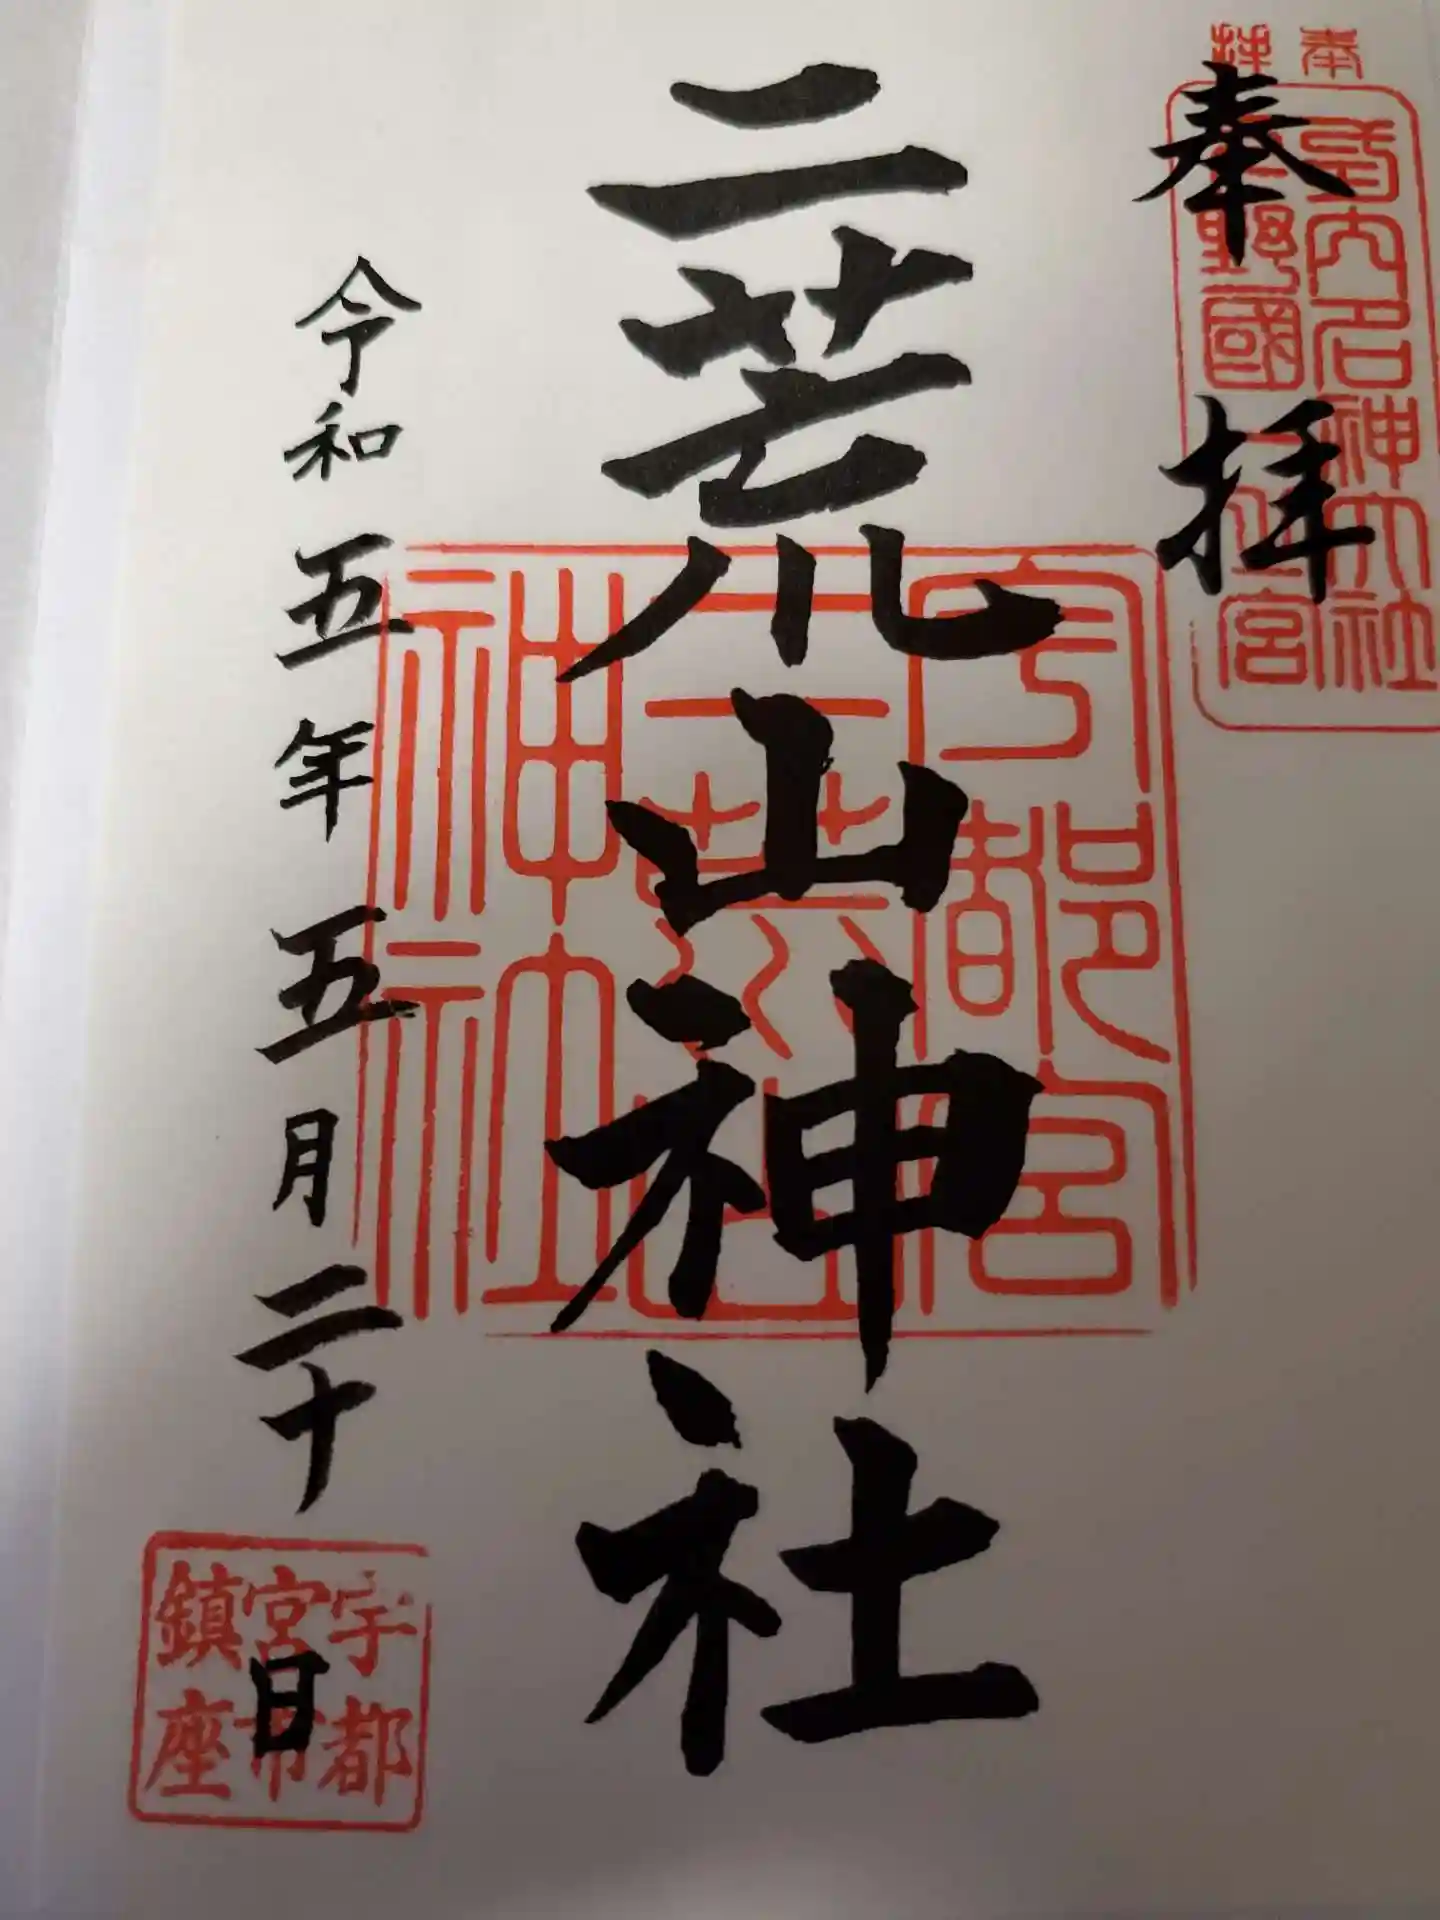 奉拝
奉拝
式内名神大社
下野國一之宮
二荒山神社
宇都宮
二荒山
神社
令和五年五月二十日
宇都
宮市
鎮座